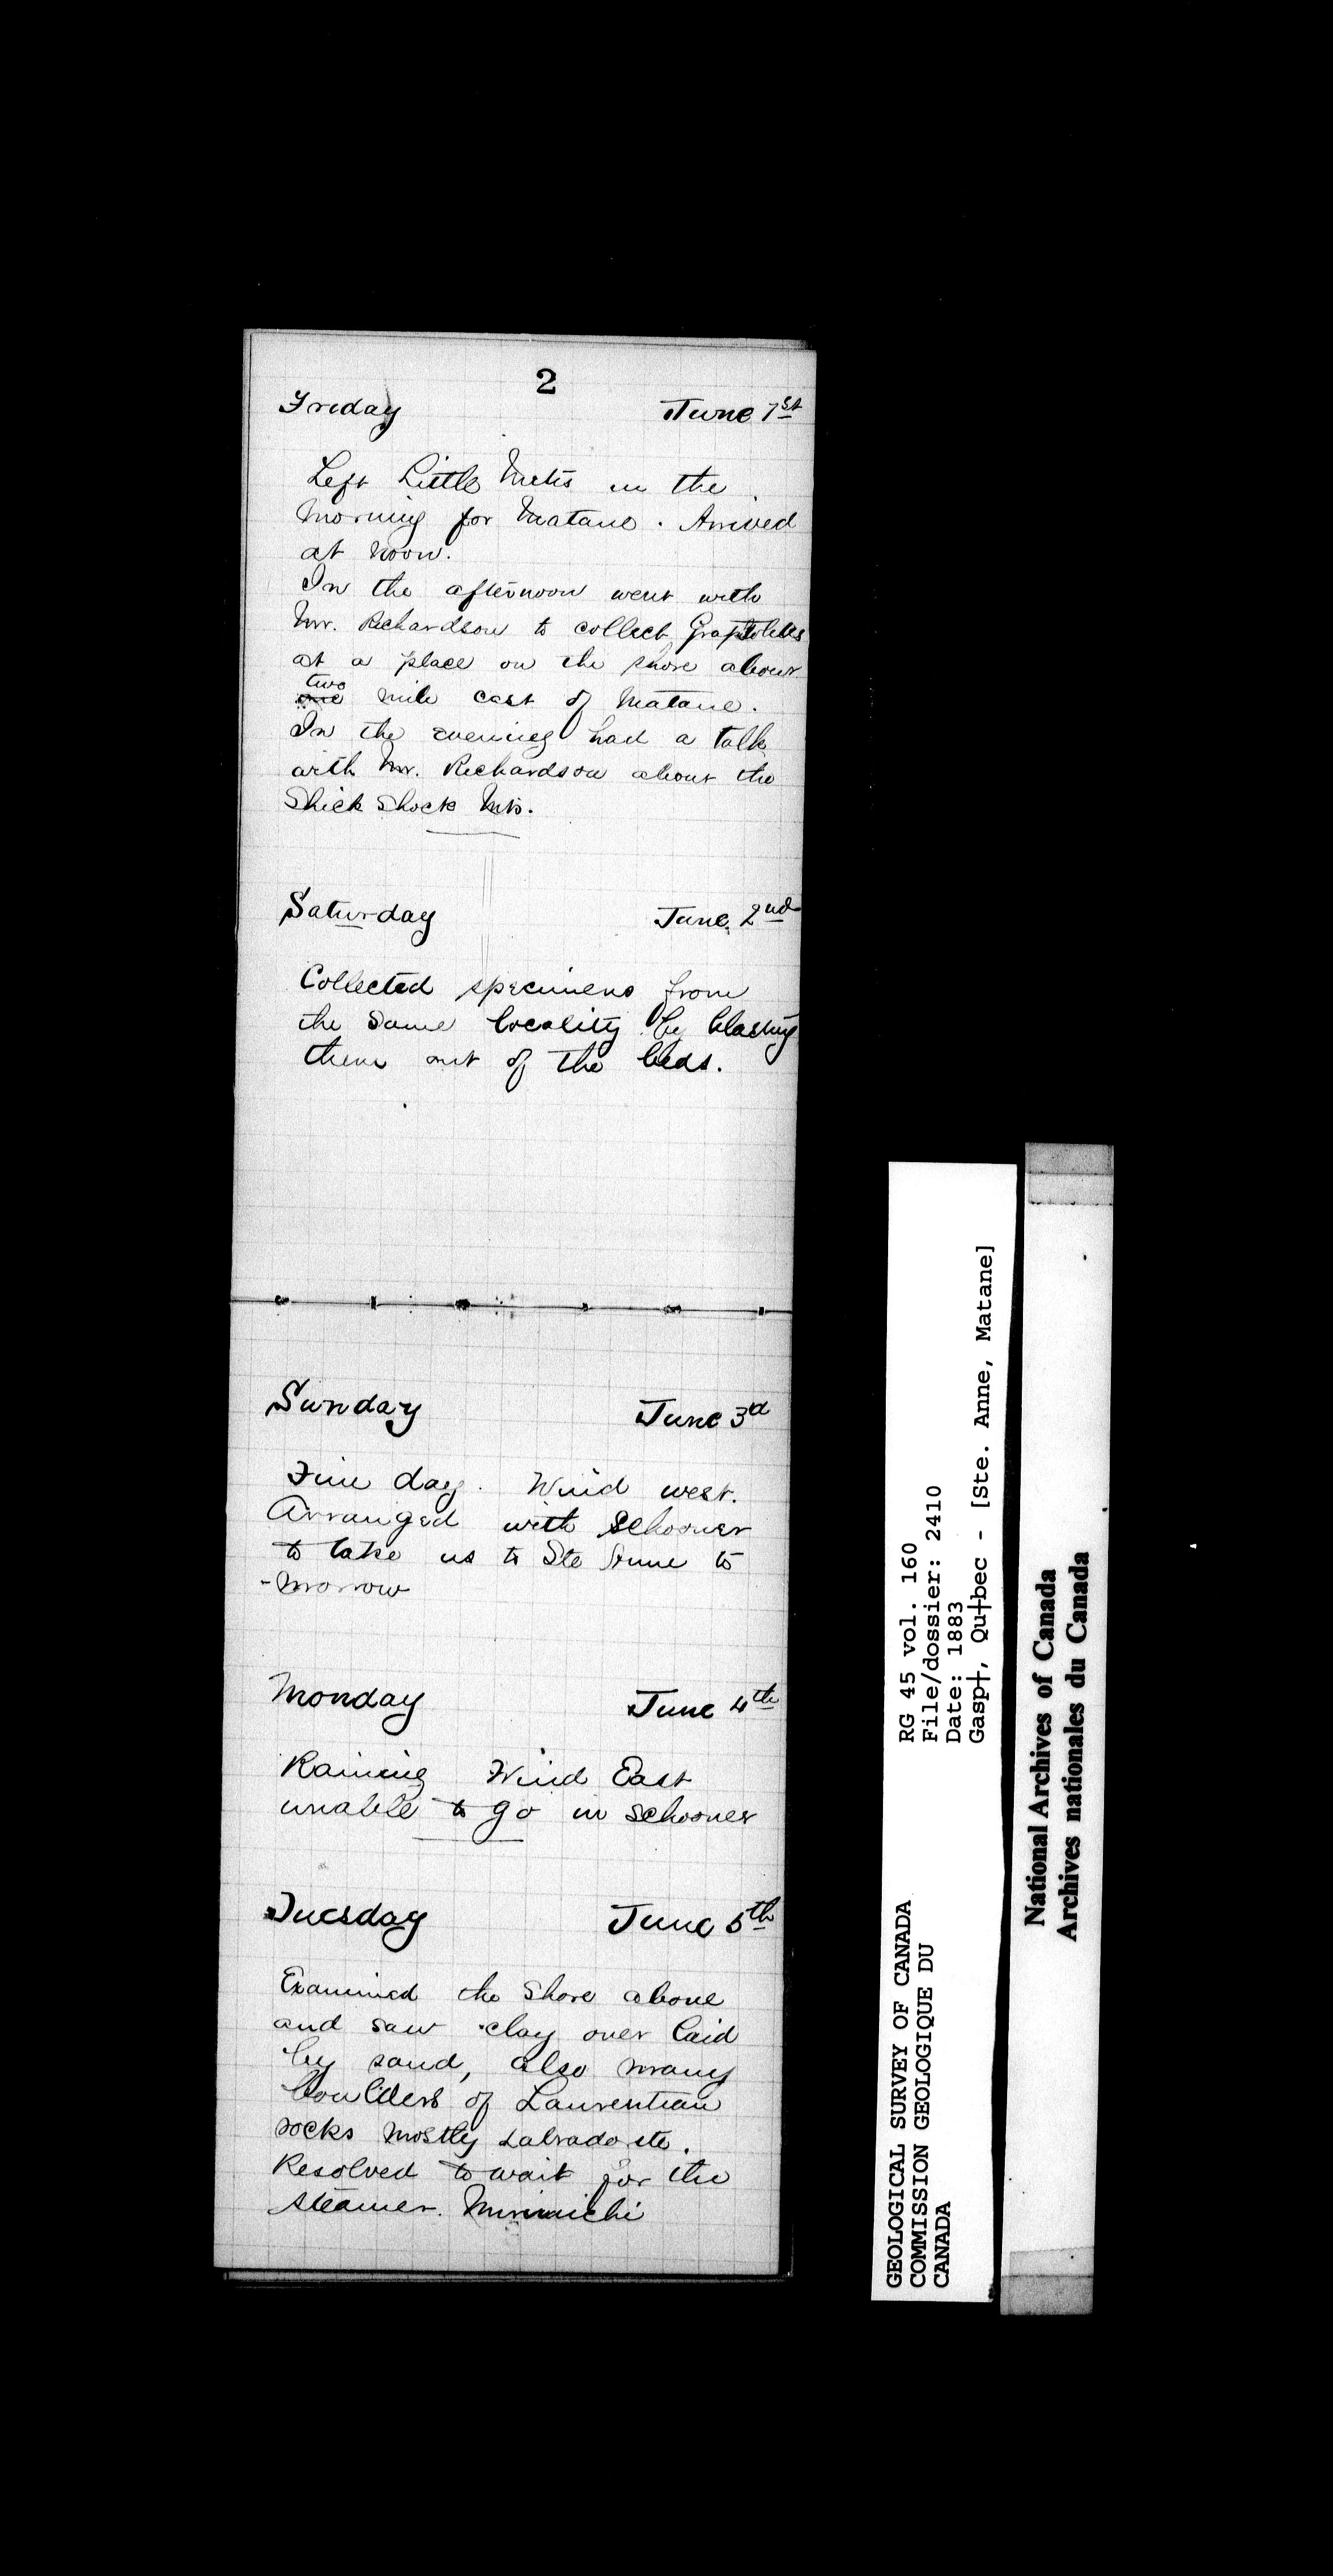 2
Friday June 1st
Left Little Metis in the
morning for Matane. Arrived
at noon.
In the afternoon went with
Mr. Richardson to collect Graptolites
at a place on the shore about
two
one mile east of Matane.
In the evening had a talk
with Mr. Richardson about the
Shick Shock Mts.
Saturday June 2nd
Collected specimens from
the same locality by blasting
them out of the beds.
Sunday June 3d
Fine day. Wind west.
Arranged with Schooner
to take us to Ste Anne to
-morrow
Monday June 4th
Raining Wind East
unable to go in schooner
Tuesday June 5th
Examined the Shore above
and saw clay over laid
by sand, also many
boulders of Laurentian
rocks mostly Labradorite.
Resolved to wait for the
steamer. Mirimichi
GEOLOGICAL SURVEY OF CANADA
COMMISSION GEOLOGIQUE DU
CANADA
RG 45 vol. 160
File/dossier: 2410
Date: 1883
Gasp†, Qu†bec - [Ste. Anne, Matane]
National Archives of Canada
Archives nationales du Canada